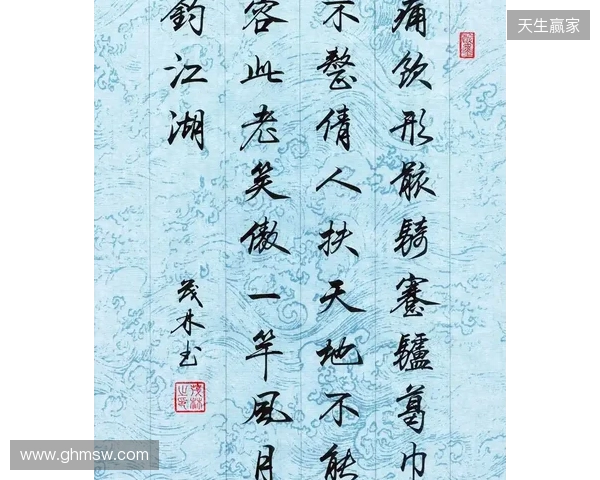 天生赢家
痛飲形骸騎蹇驢葛巾
不整倩人扶天地不能
容此老笑傲一竿風月
釣江湖
茂林书
www.ghmsw.com